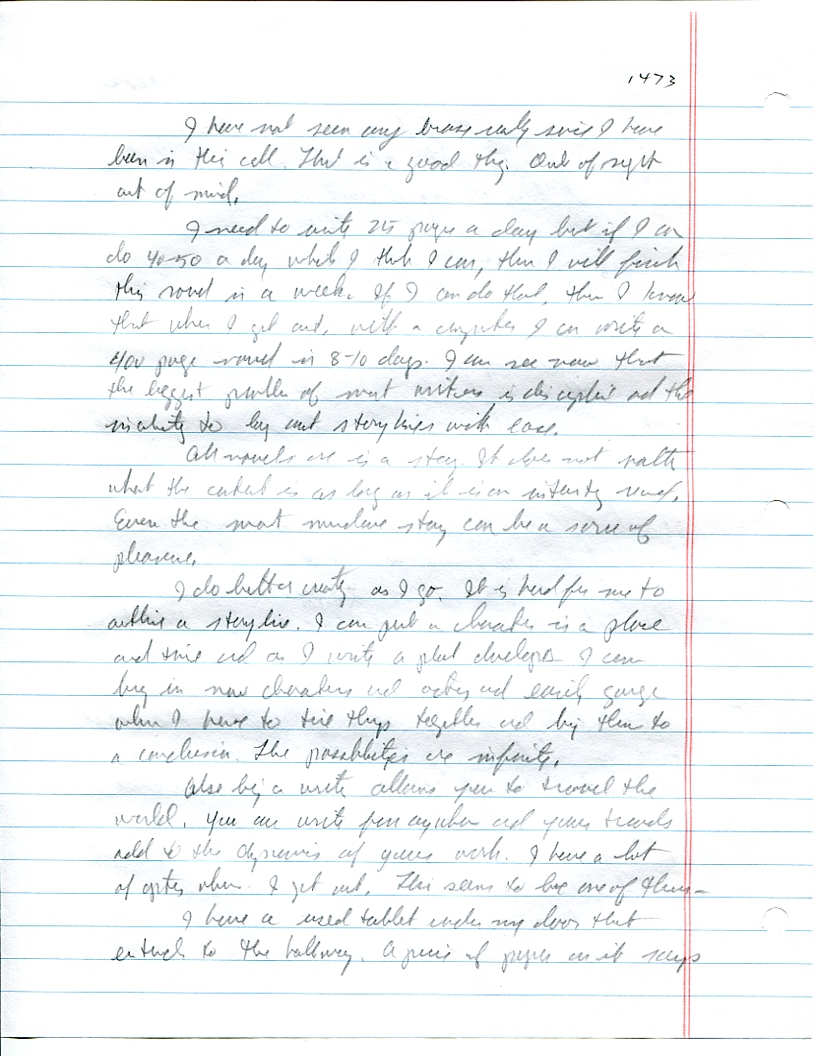 1473
I have not seen any since I have
been in this cell. That is a good thg. Out of sight
out of mind.
I need to write 25 pages a day but if I can
do 40-50 a day which I thk I can, then I will finish
this novel in a week. If I can do that, then I know
that when I get out, with a computer I can write a
400 page novel in 8-10 days. I can see now that
the biggest problem of most writers is discipline and the
inability to lay out storylines with ease.
All novels are is a story. It does not matter
what the content is as long as it is an read.
Even the most mundane story can be a source of
pleasure.
I do better creatg as I go. It is hard for me to
outline a storyline. I can put a character in a place
and time and as I write a plot develops. I can
brg in new characters and and easily gauge
when I have to tire thgs together and brg them to
a conclusion. The possiblities are infinite.
Also beg a write allows you to travel the
world. You can write from anywhere and your travels
add to the dynamics of your work. I have a lot
of optes when I get out. This seems to be one of them-
I have a used tablet under my door that
extends to the hallway. A piece of paper on it says